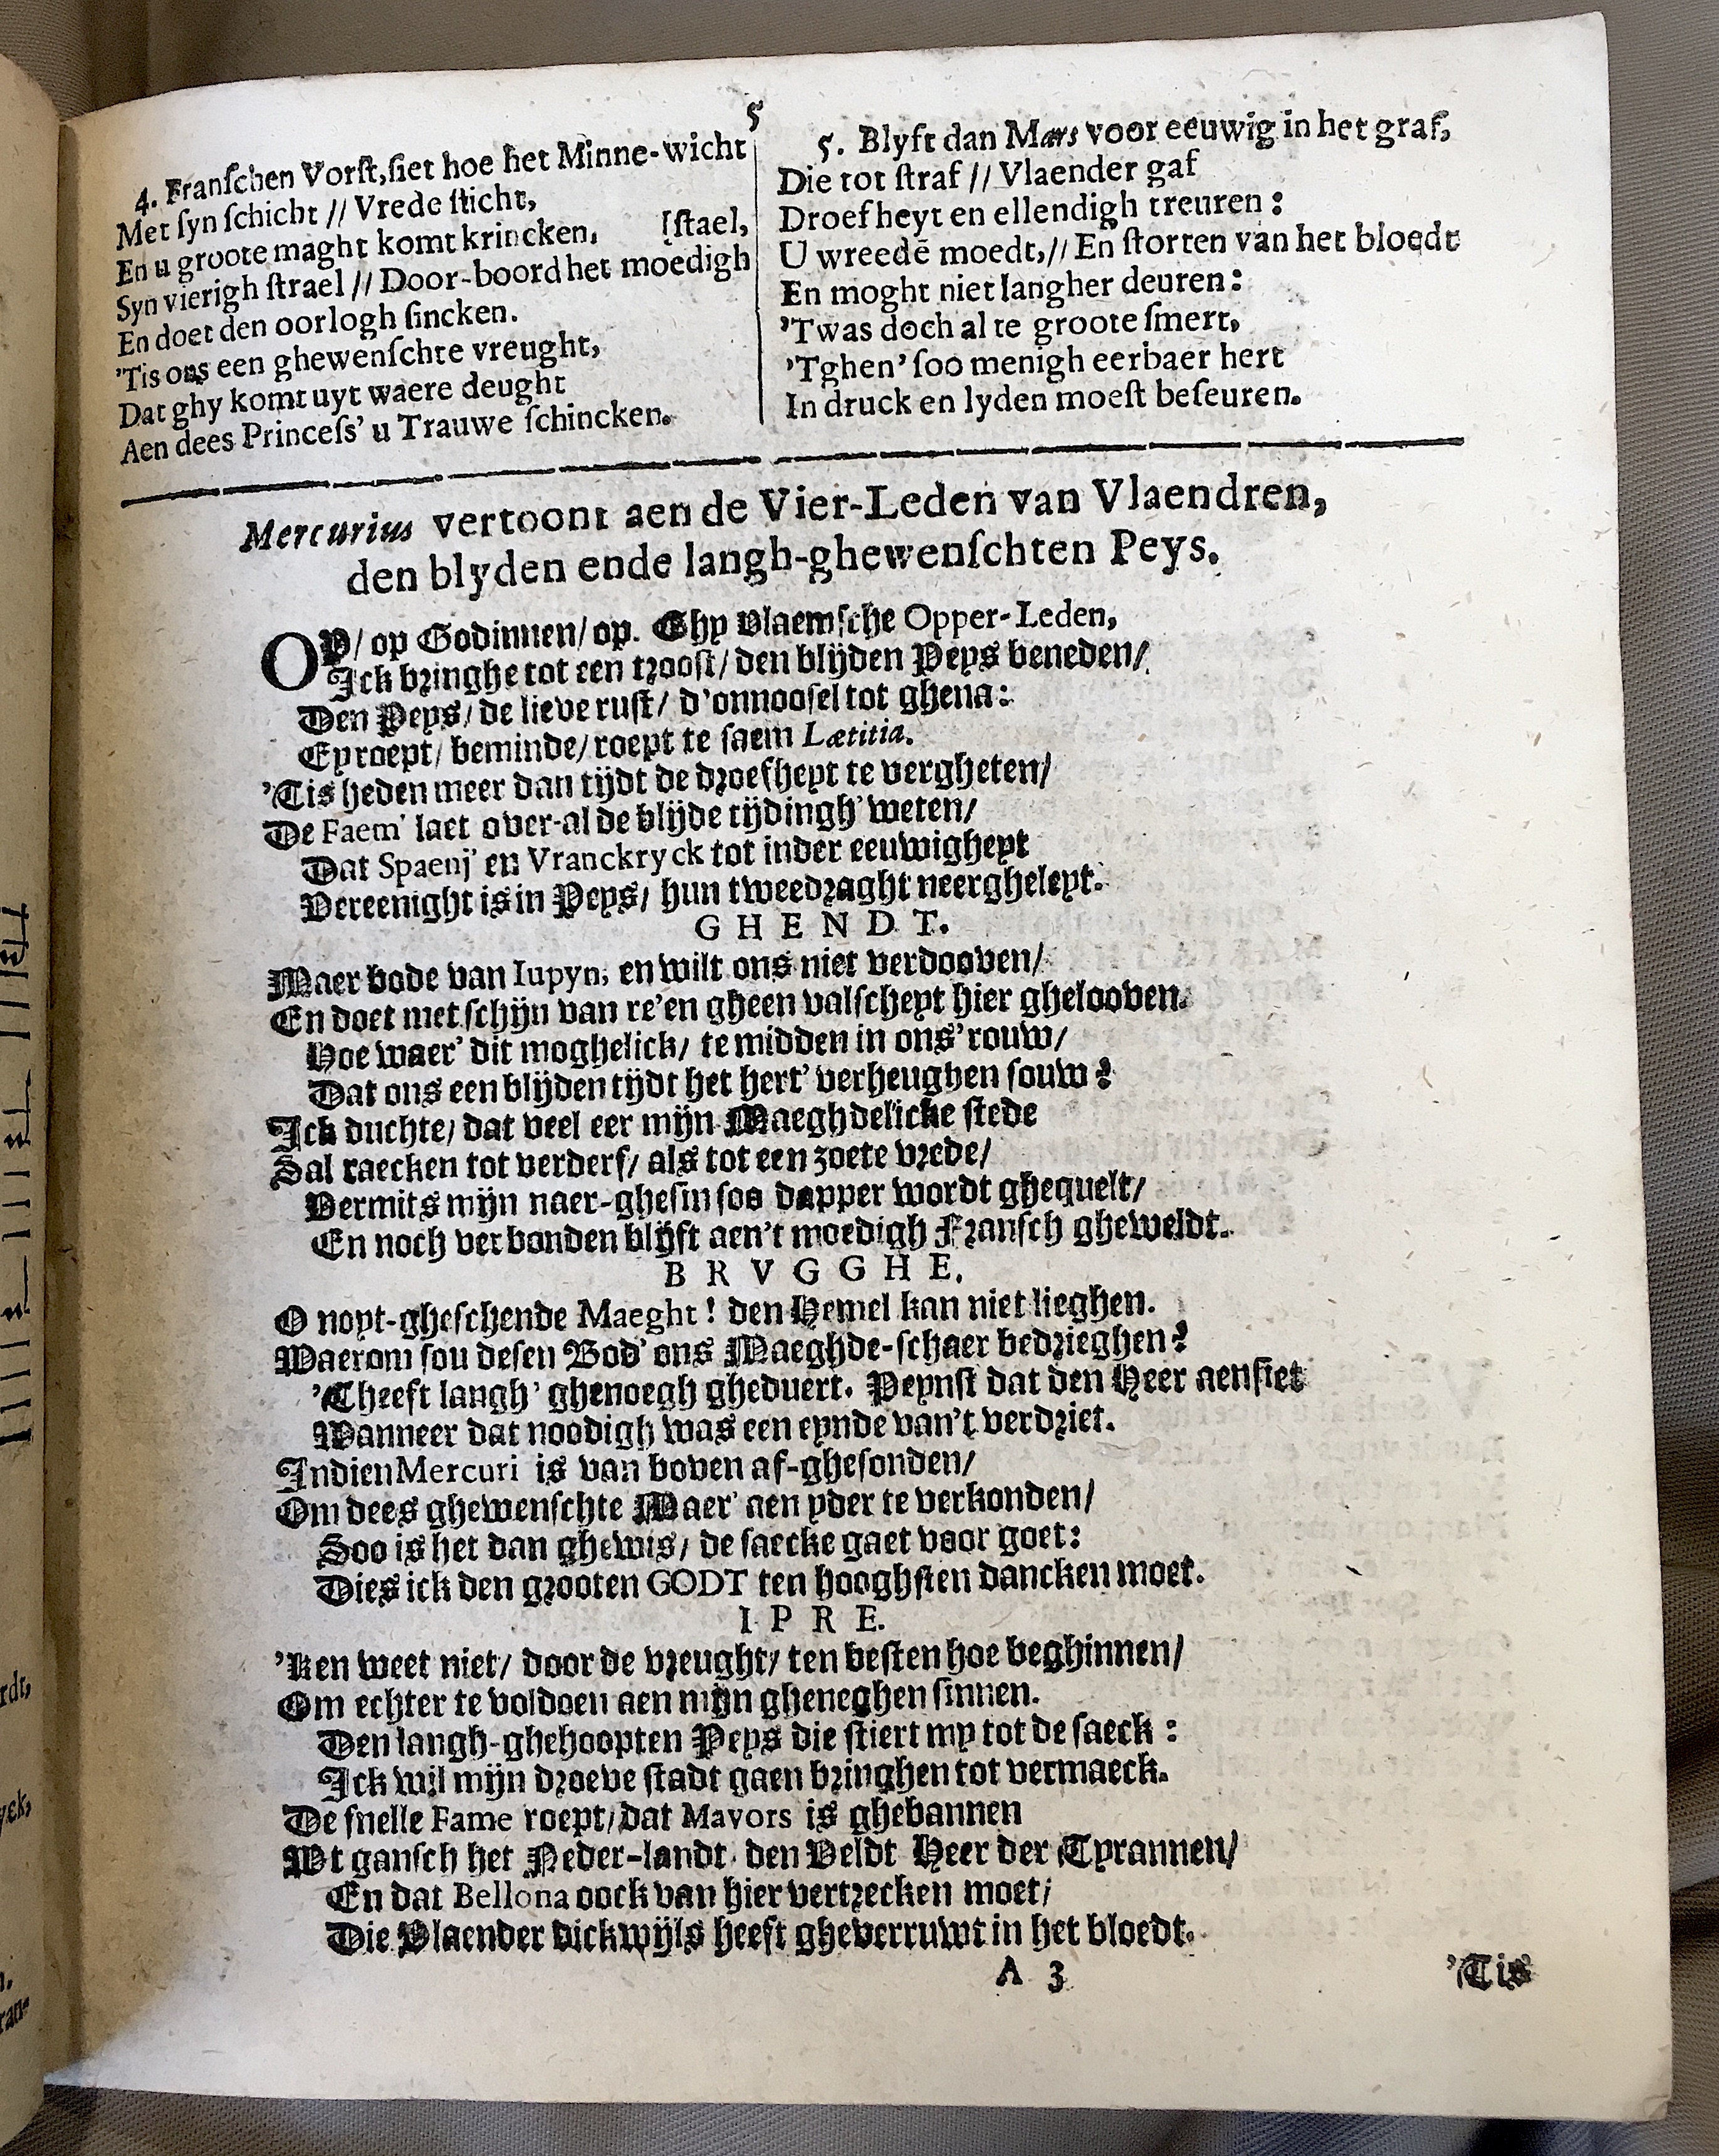 5
4. Franſchen Vorſt, ſiet hoe het Minne-wicht
Met ſyn ſchicht // Vrede ſticht,
En u groote maght komt krincken, [ſtael,
Syn vierigh ſtrael // Door-boord het moedigh
En doet den oorlogh ſincken.
'Tis ons een ghewenſchte vreught,
Dat ghy komt uyt waere deught
Aen dees Princeſs' u Trauwe ſchincken.
5. Blyft dan Mars voor eeuwig in het graf,
Die tot ſtraf // Vlaender gaf
Droefheyt en ellendigh treuren:
U wreedē moedt, // En ſtorten van het bloedt
En moght niet langher deuren:
'Twas doch al te groote ſmert,
'Tghen' ſoo menigh eerbaer hert
In druck en lyden moeſt beſeuren.
Mercurius vertoont aen de Vier-Leden van Vlaendren,
den blyden ende langh-ghewenſchten Peys.
OP/ op Godinnen/ op. Ghy Vlaemſche Opper-Leden,
Ick bringhe tot een trooſt/ den blijden Peys beneden/
Den Peys/ de lieve ruſt/ d'onnooſel tot ghena:
Ey roept/ beminde/ roept te ſaem Lætitia.
'Tis heden meer dan tijdt de droefheyt te vergheten/
De Faem' laet over-al de blijde tijdingh' weten/
Dat Spaenj' en Vranckryck tot inder eeuwigheyt
Vereenight is in Peys/ hun tweedraght neergheleyt.
GHENDT.
Maer bode van Iupyn, en wilt ons niet verdooven/
En doet met ſchijn van re'en gheen valſcheyt hier ghelooven.
Hoe waer' dit moghelick/ te midden in ons' rouw/
Dat ons een blijden tijdt het hert' verheughen ſouw?
Ick duchte/ dat veel eer mijn Maeghdelicke ſtede
Sal raecken tot verderf/ als tot een zoete vrede/
Vermits mijn naer-gheſin ſoo dapper wordt ghequelt/
En noch verbonden blijft aen't moedigh Franſch gheweldt.
BRVGGHE.
O noyt-gheſchende Maeght! den Hemel kan niet lieghen.
Waerom ſou deſen Bod' ons Maeghde-ſchaer bedrieghen?
'Theeft langh' ghenoegh gheduert. Peynſt dat den Heer aenſiet
Wanneer dat noodigh was een eynde van't verdriet.
Indien Mercuri is van boven af-gheſonden/
Om dees ghewenſchte Maer' aen yder te verkonden/
Soo is het dan ghewis/ de ſaecke gaet voor goet:
Dies ick den grooten GODT ten hooghſten dancken moet.
IPRE.
'Ken weet niet/ door de vreught/ ten beſten hoe beghinnen/
Om echter te voldoen aen mijn gheneghen ſinnen.
Den langh-ghehoopten Peys die ſtiert my tot de ſaeck:
Ick wil mijn droeve ſtadt gaen bringhen tot vermaeck.
De ſnelle Fame roept/ dat Mavors is ghebannen
Wt ganſch het Neder-landt, den Veldt Heer der Tyrannen/
En dat Bellona oock van hier vertrecken moet/
Die Vlaender dickwijls heeft gheverruwt in het bloedt.
A 3
'Tis